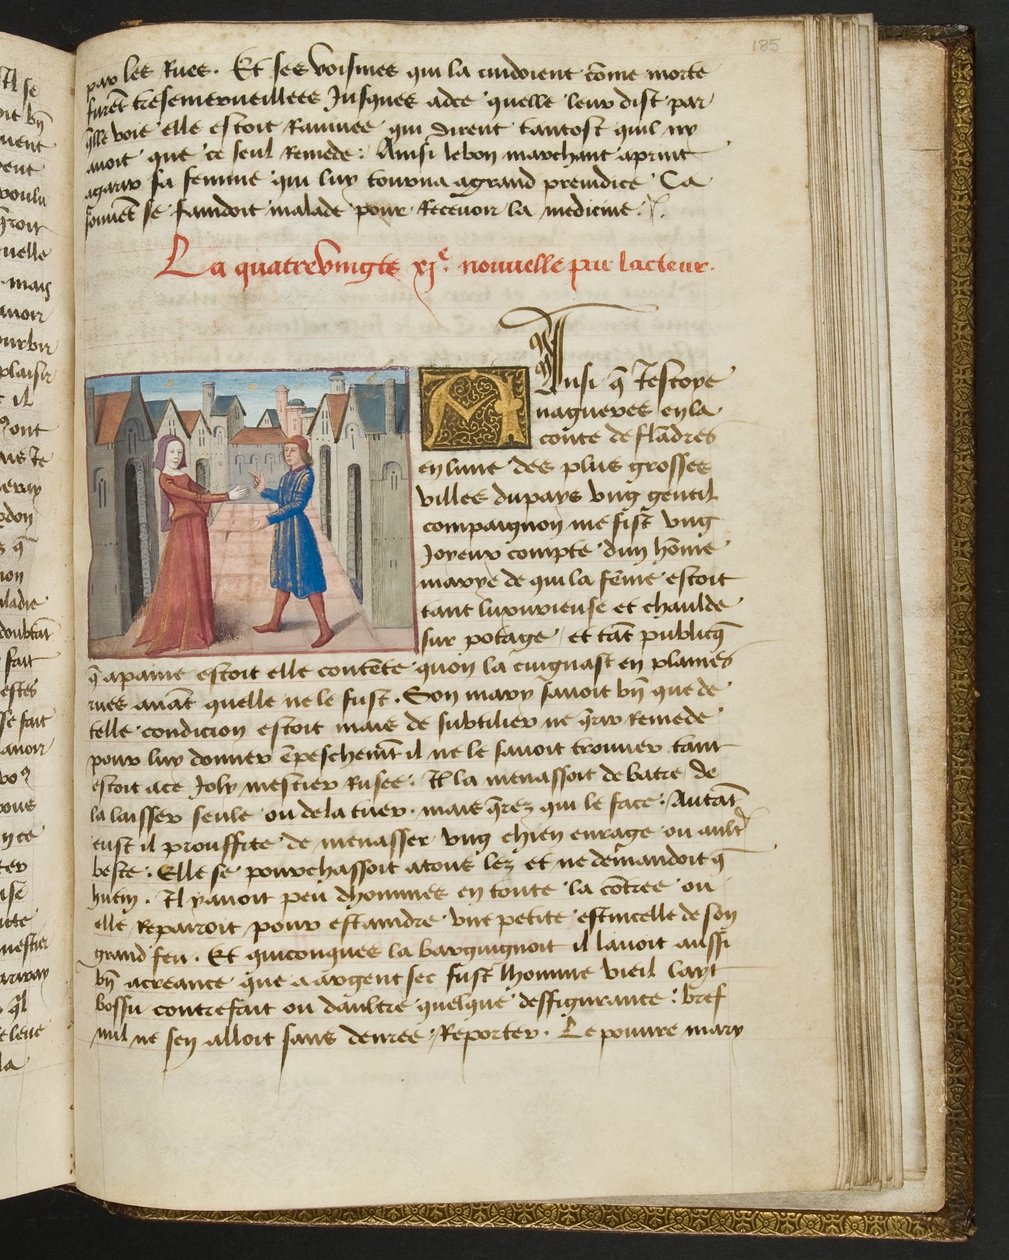 185
par les Rues. Et ses voisines qui la cuidoient cōme morte
furēt tresemerueillees Jusques adce quelle leur dist par
q̄lle voie elle estoit Rauiuee qui dirent tantost quil ny
auoit que ce seul Remede: Ainsi le bon marchant aprint
agarir sa femme qui luy tourna a grand preiudice Ca
souuēt se faindoit malade pour Receuoir la medicine.
La quatreVingts xje. nouuelle par lacteur.
Ainsi q̄ Jestoye
nagueres en la
conte de flādres
en lune des plus grosses
villes du pays vng gentil
compaignon me fist vng
Joyeux compte dun hōme
marye de qui la fēme estoit
tant luxurieuse et chaulde
sur potage et tāt publicq̄
q̄ apaine estoit elle contēte quon la cuignast en plaines
rues auāt quelle ne le fust. Son mary sauoit bn̄ que de
telle condicion estoit mais de subtilier ne q̄rir Remede
pour luy donner ēpeschemt̄ il ne le sauoit trouuer tant
estoit ace Joly mestier Rusee. Il la menassoit de batre de
la laisser seule ou de la tuer. mais q̄rez qui le face. Autāt
eust il prouffite de menasser vng chien enrage ou aultr̄
beste. Elle se pourchassoit atous lez et ne demandoit q̄
hutin. Il y auoit peu dhommes en toute la cōtree ou
elle Repairoit pour estaindre vne petite estincelle de son
grand feu. Et quiconques la barguignoit il lauoit aussi
bn̄ acreance que a argent sec fust lhomme vieil layt
bossu contrefait ou daultre quelque deffigurance. bref
nul ne sen alloit sans denree Reporter. Le pouure mary